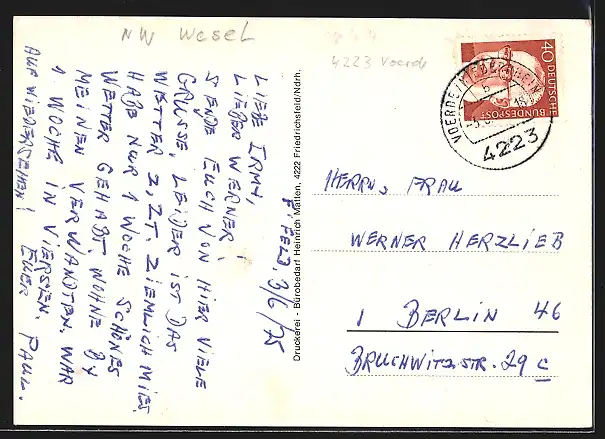 NW Wesel
4223 Voerde
F'FELD, 3/6/75
LIEBE IRMY,
LIEBER WERNER!
SENDE EUCH VON HIER VIELE
GRÜSSE, LEIDER IST DAS
WETTER Z. ZT. ZIEMLICH MIES.
HABE NUR 1 WOCHE SCHÖNES
WETTER GEHABT, WOHNE BY
MEINEN VERWANDTEN. WAR
1 WOCHE IN VIERSEN.
AUF WIEDERSEHEN! EUER PAUL.
Druckerei - Bürobedarf Heinrich Matten, 4222 Friedrichsfeld/Ndrh.
40
DEUTSCHE
BUNDESPOST
VOERDE (NIEDERRHEIN)
b
4223
HERRN, FRAU
WERNER HERZLIEB
1 BERLIN 46
BRUCHWITZ.STR. 29 C